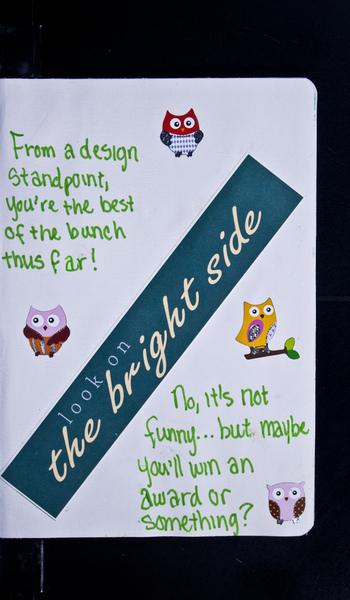 From a design
standpoint,
you're the best
of the bunch
thus far!
look on
the bright side
No, it's not
funny... but maybe
you'll win an
award or
something?